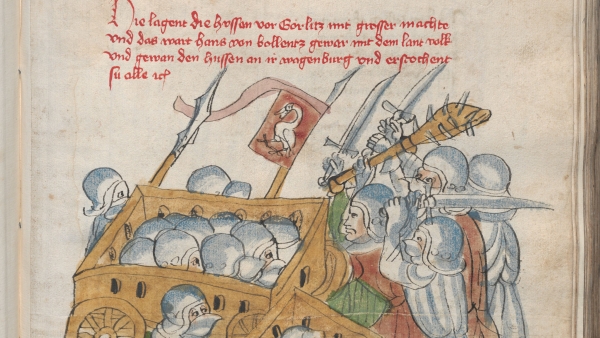 Hie lagent die hussen vor Görlitz mit grosser machte
vnd das wart hans von bollentz gewar mit dem lant volk
vnd gewan den hussen an ir wagenburg vnd erstochent
sü alle ꝛc